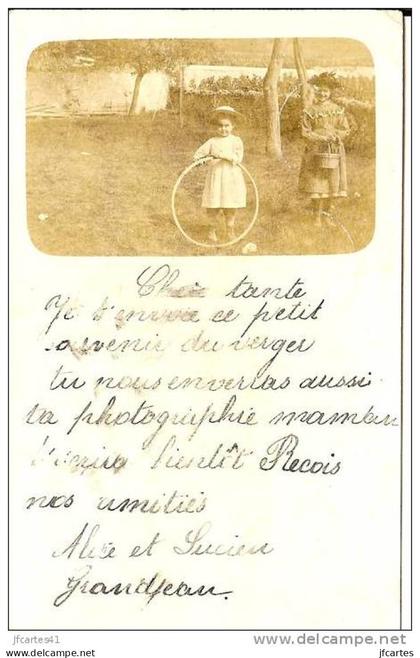 Cheie tante
Je t'envoie ce petit
souvenir du verger
tu nous enverras aussi
ta photographie maman
t'écrira bientôt Reçois
nos amitiés
Alice et Lucien
Grandjean.
jfcartes41
www.delcampe.net
jfcartes